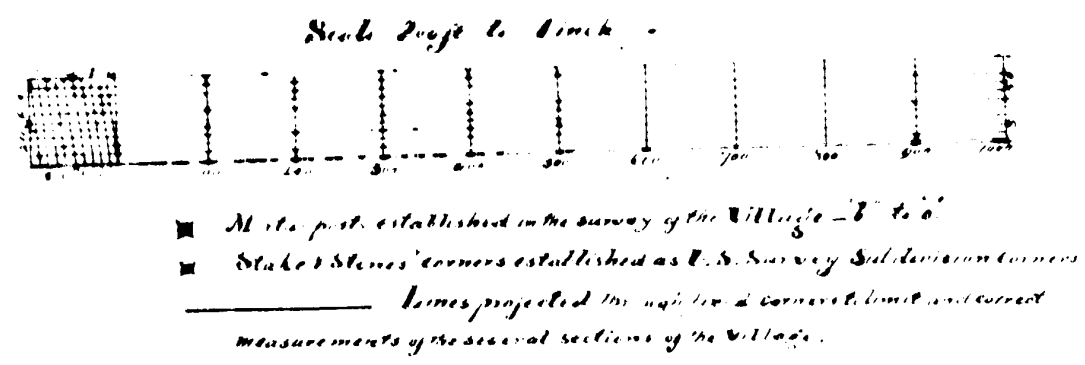 Scale 200ft to 1 inch
100 200 300 400 500 600 700 800 900 1000
posts established in the survey of the Village - "b" to "o"
Stake & Stones corners established as U.S. Survey Subdivision corners
Lines projected through corners to limit and correct
measurements of the several sections of the Village.